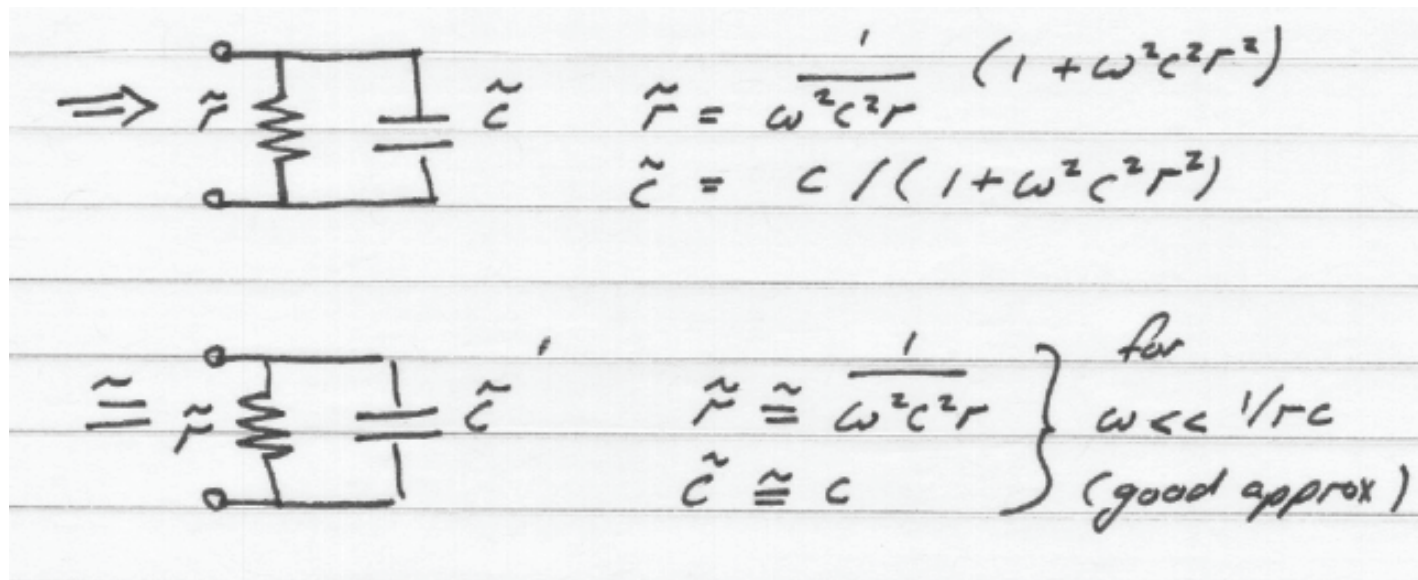 ⇒ r̃ c̃ r̃ = 1/(ω²c²r) (1 + ω²c²r²)
c̃ = c / (1 + ω²c²r²)
≅ r̃ c̃ r̃ ≅ 1/(ω²c²r) } for
ω << 1/rc
c̃ ≅ c (good approx)